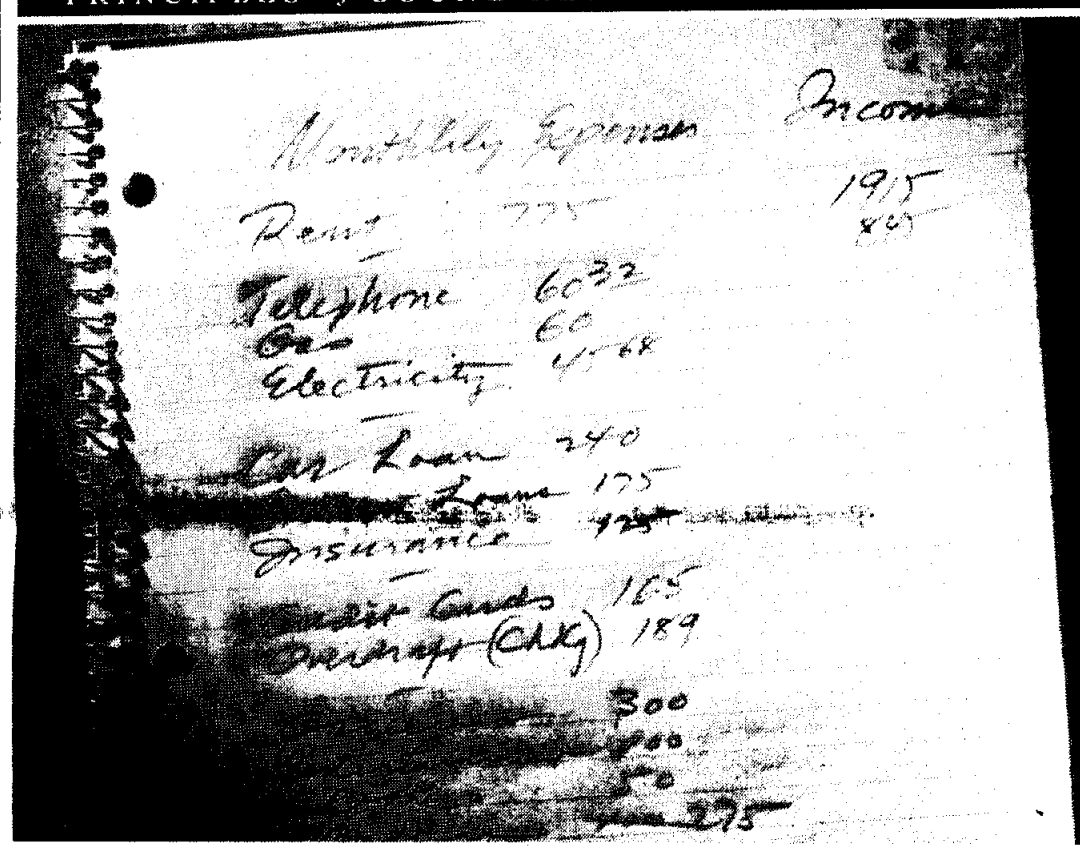 Monthlily Expenses Income
Rent 775 1915
Telephone 60 32
Gas 60
Electricity 45 68
Car Loan 240
Loans 175
Insurance 125
Credit Cards 165
Overdraft (Chkg) 189
300
50
275